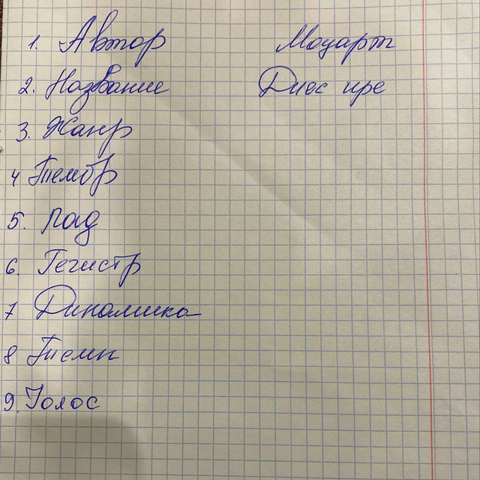 1. Автор Моцарт
2. Название Диес ире
3. Жанр
4 Тембр
5. Лад
6. Регистр
7 Динамика
8 Темп
9. Голос